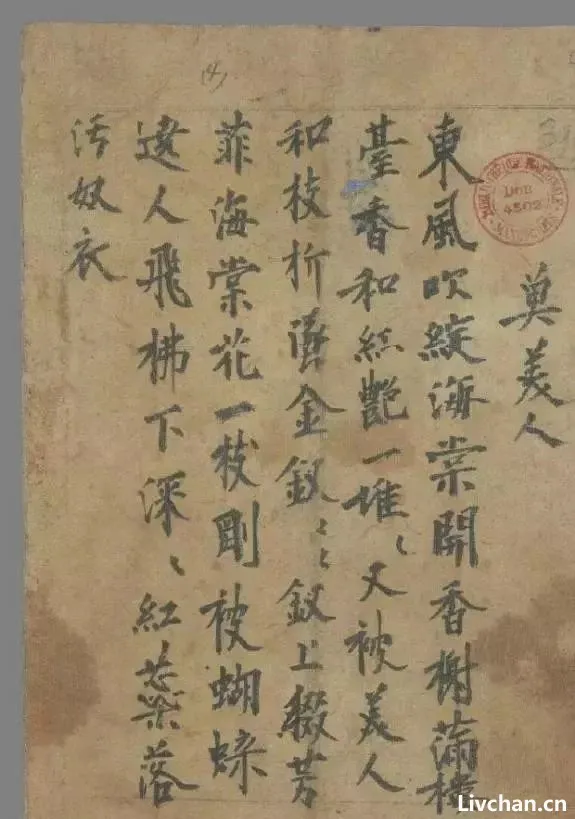 美人
東風吹綻海棠開香榭滿樓
臺香和紅艷一堆〻又被美人
和枝折墜金釵〻〻釵上綴芳
菲海棠花一枝剛被蝴蝶
遶人飛拂下深〻紅蕊落
污奴衣
DON
4502
Livchan.cn